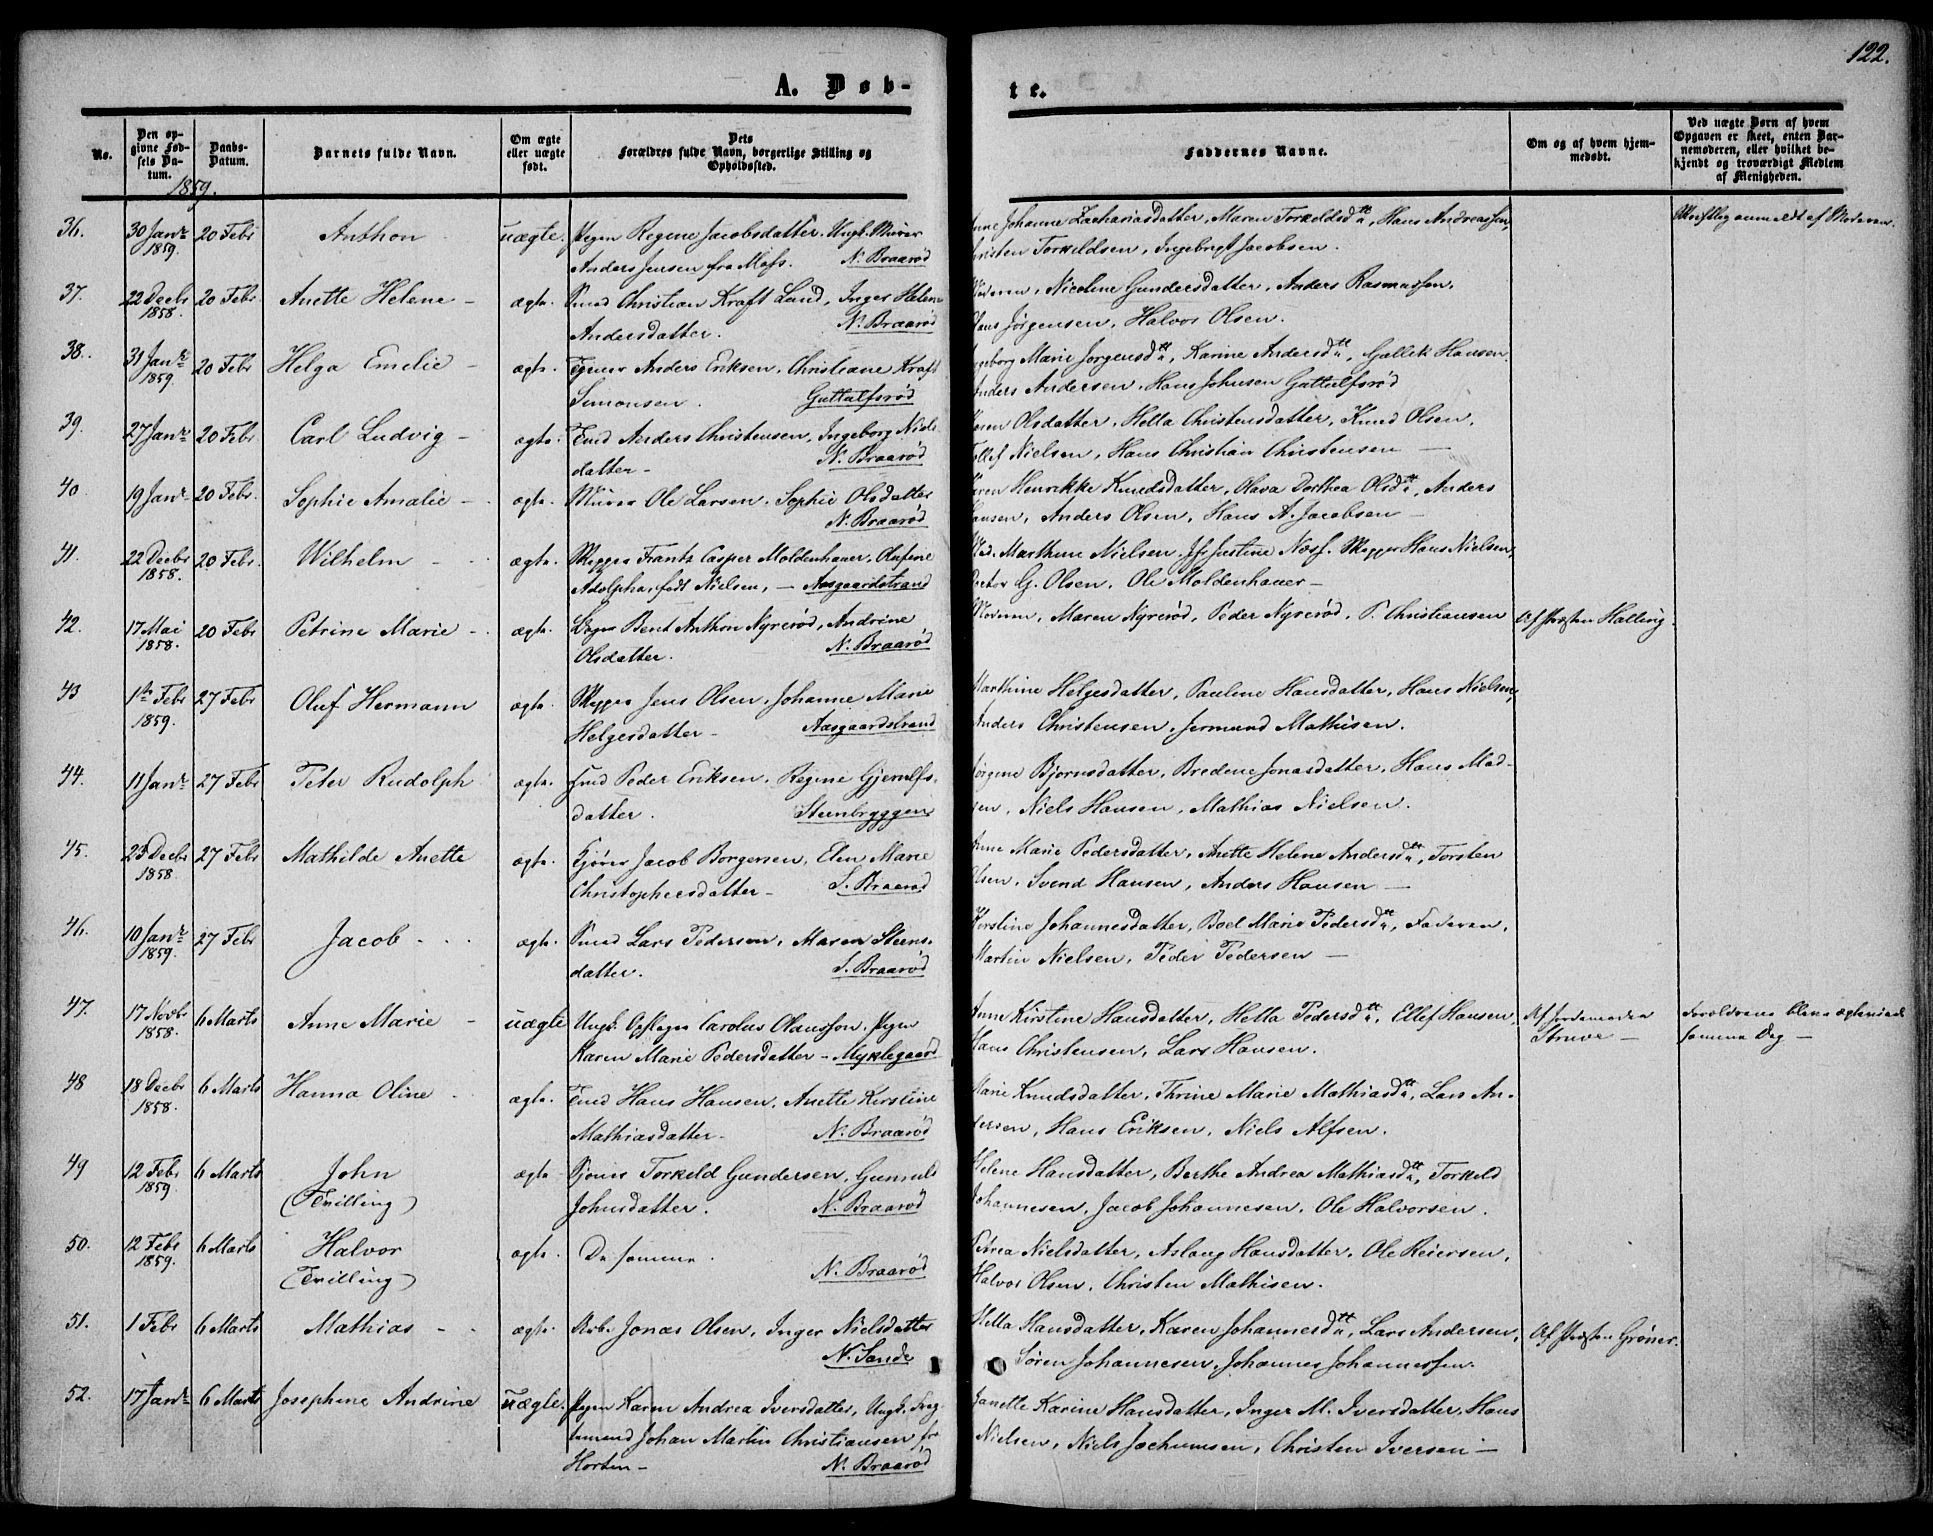 122.
A. Døb-
te.
No.
Den op-
givne Fød-
sels Da-
tum.
Daabs-
Datum.
Barnets fulde Navn.
Om ægte
eller uægte
født.
Dets
Forældres fulde Navn, borgerlige Stilling og
Opholdssted.
Faddernes Navne.
Om og af hvem hjem-
medøbt.
Ved uægte Børn af hvem
Opgaven er skeet, enten Bar-
nemoderen, eller hvilket be-
kjendt og troværdigt Medlem
af Menigheden.
1859.
36. 30 Janr 1859. 20 Febr Anthon uægte. Pigen Regine Jacobsdatter. Ungk. Murer
Anders Jensen fra Moss. N. Braarød
Johanne Zachariasdatter, Maren Torkeldsdtr, Hans Andreassen,
Torkeldsen, Ingebrigt Jacobsen.
Skriftlig anmeldt af Moderen.
37. 22 Decbr 1858. 20 Febr Anette Helene – ægte. Smed Christian Kraft Lund, Inger Helene
Andersdatter. N. Braarød
Moderen, Nicoline Gundersdatter, Anders Rasmussen,
Hans Jørgensen, Halvor Olsen.
38. 31 Janr 1859 20 Febr Helga Emelie – ægte. Eier Anders Eriksen, Christiane Kraft
Simonsen. Guttulfsrød
Ingeborg Marie Jorgensdtr, Karine Andersdtr, Gullik Hansen
Anders Andersen, Hans Johnsen Guttulfsrød
39. 27 Janr 20 Febr Carl Ludvig – ægte. Inds Anders Christensen, Ingeborg Niels-
datter – N. Braarød
Olsdatter, Hella Christensdatter, Knud Olsen,
Tollef Nielsen, Hans Christian Christensen –
40. 19 Janr 20 Febr. Sophie Amalie – ægte. Murer Ole Larsen, Sophie Olsdatter
N. Braarød
Henrikke Knudsdatter, Olava Dorthea Olsdtr, Anders
Hansen, Anders Olsen, Hans A. Jacobsen –
41. 22 Decbr 1858. 20 Febr. Wilhelm – ægte. Skipper Frantz Casper Moldenhauer, Olufine
Adolpha, født Nielsen, – Aasgaardstrand
Mad. Marthine Nielsen, Jfr Justine Næss. Skipper Hans Nielsen,
G. Olsen, Ole Moldenhauer –
42. 17 Mai 1858. 20 Febr Petrine Marie – ægte. Bent Anthon Nyrerød, Andrine
Olsdatter. N. Braarød
Moderen, Maren Nyrerød, Peder Nyrerød, P. Christiansen
Af Præsten Halling.
43 1ste Febr 1859. 27 Febr Oluf Hermann ægte. Skipper Jens Olsen, Johanne Marie
Helgesdatter – Aasgaardstrand
Marthine Helgesdatter, Pauline Hansdatter, Hans Nielsen,
Anders Christensen, Jermund Mathisen.
44. 11 Janr 27 Febr Peter Rudolph ægte. Inds Peder Eriksen, Regine Gjerulfs-
datter. Steenbryggen
Jørgine Bjornsdatter, Bredene Jonasdatter, Hans Mad-
sen, Niels Hansen, Mathias Nielsen.
45. 23 Decbr 1858 27 Febr Mathilde Anette ægte. Jacob Borgersen, Elen Marie
Christophersdatter – S. Braarød
Anne Marie Pedersdatter, Anette Helene Andersdtr, Torsten
Olsen, Svend Hansen, Anders Hansen –
46. 10 Janr 1859. 27 Febr Jacob ægte. Smed Lars Pedersen, Maren Steens-
datter. S. Braarød
Kirstine Johannesdatter, Boel Marie Pedersdtr, Faderen,
Martin Nielsen, Peder Pedersen –
47. 17 Novbr 1858. 6 Marts Anne Marie – uægte Ungk. Opslager Carolus Olaussen. Pigen
Karen Marie Pedersdatter – Myklegaard
Anne Kirstine Hansdatter, Hella Pedersdtr, Ellef Hansen,
Hans Christensen, Lars Hansen.
Af Jordemoder
Struve –
Forældrene bleve ægteviede
samme Dag –
48 18 Decbr 1858. 6 Marts Hanna Oline ægte. Inds Hans Hansen, Anette Kirstine
Mathiasdatter – N. Braarød
Marie Knudsdatter, Thrine Marie Mathiasdtr, Lars An-
dersen, Hans Eriksen, Niels Alfsen.
49 12 Febr 1859 6 Marts John
(Tvilling) ægte Torkeld Gundersen, Gunnild
Johnsdatter. N. Braarød
Helene Hansdatter, Berthe Andrea Mathiasdtr, Torkeld
Johannesen, Jacob Johannesen, Ole Halvorsen.
50. 12 Febr 1859. 6 Marts Halvor
(Tvilling) ægte. De samme.
N. Braarød
Petrea Nielsdatter, Aslaug Hansdatter, Ole Reiersen,
Halvor Olsen, Christen Mathisen.
51. 1 Febr 6 Marts Mathias – ægte. Arb. Jonas Olsen, Inger Nielsdatter
N. Sande
Hella Hansdatter, Karen Johannesdtr, Lars Andersen,
Søren Johannesen, Johannes Johannessen.
Af Præsten Grøner.
52. 17 Janr 6 Marts Josephine Andrine uægte. Pigen Karen Andrea Iversdatter, Ungk. Tøg-
tømmermd Johan Martin Christiansen fra
Horten – N. Braarød
Janette Karine Hansdatter, Inger M. Iversdatter, Hans
Nielsen, Niels Jochumsen, Christen Iversen –